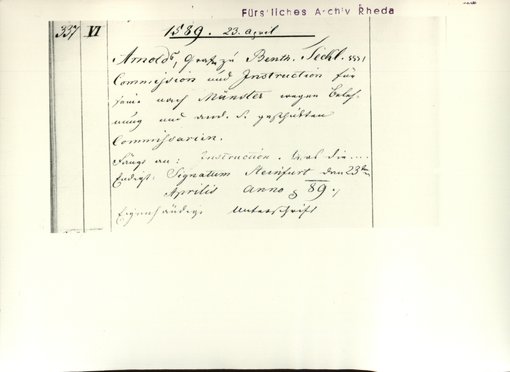 Fürstliches Archiv Rheda
337 VI 1589. 23. April
Arnolds, Graf zu Benth. Teckl.
Commission und Instruction für
seine nach Münster wegen Beleh-
nung und and. S. geschickten
Commissarien.
Fängt an: Instruction.
Endigt: Signatum Steinfurt den 23ten
Aprilis Anno 89.
Eigenhändige Unterschrift